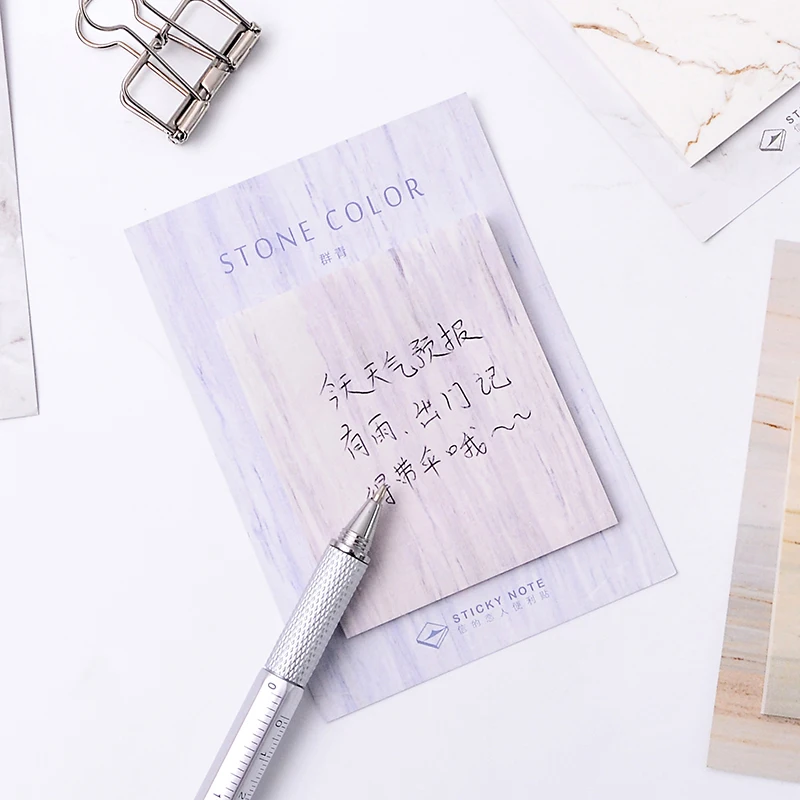 STONE COLOR
群青
今天天气预报
有雨、出门记
得带伞哦~~
STICKY NOTE
信的恋人便利贴